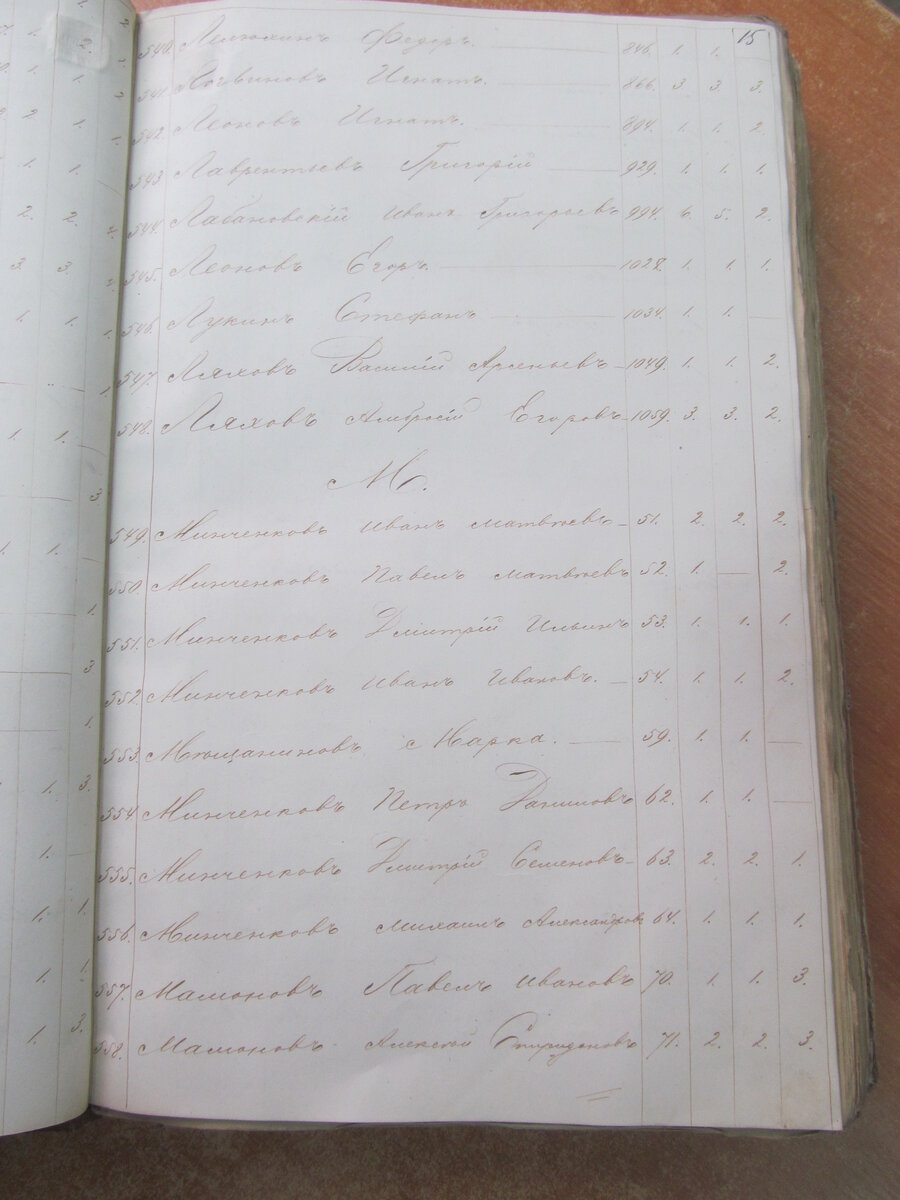 15
540. Лелюхинъ Федоръ. 846. 1. 1.
541. Логвиновъ Игнатъ. 866. 3. 3. 3.
542. Леоновъ Игнатъ. 894. 1. 1. 2.
543 Лаврентьевъ Григорій 929. 1. 1. 1.
544. Лабановскій Иванъ Григорьевъ 994. 6. 5. 2.
545. Леоновъ Егоръ. 1028. 1. 1. 1.
546. Лукинъ Стефанъ 1034. 1. 1. —
547. Ляховъ Василій Арсеньевъ 1049. 1. 1. 2.
548. Ляховъ Амбросій Егоровъ 1059. 3. 3. 2.
М.
549. Минченковъ Иванъ Матвѣевъ 51. 2. 2. 2.
550. Минченковъ Павелъ Матвѣевъ 52. 1. — 2.
551. Минченковъ Дмитрій Ильинъ 53. 1. 1. 1.
552. Минченковъ Иванъ Ивановъ. 54. 1. 1. 2.
553. Мѣщаниновъ Марка. 59. 1. 1. —
554 Минченковъ Петръ Даниловъ 62. 1. 1. —
555. Минченковъ Дмитрій Семеновъ 63. 2. 2. 1.
556. Минченковъ Михаилъ Александровъ 64. 1. 1. 1.
557. Мамоновъ Павелъ Ивановъ 70. 1. 1. 3.
558. Мамоновъ Алексей Спиридоновъ 71. 2. 2. 3.